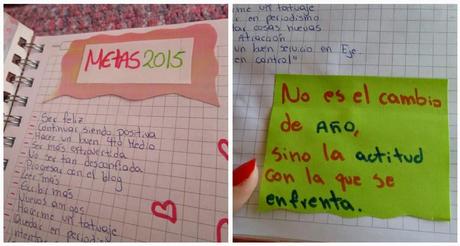 METAS 2015
- Ser feliz
- Continuar siendo positiva
- Hacer un buen 4to Medio
- Ser más extrovertida
- No ser tan desconfiada
- Progresar con el blog
- Leer más
- Escribir más
- Nuevos amigos
- Hacerme un tatuaje
- Quedar en periodis
rme un tatuaje
ar en periodismo
ar cosas nuevas
Atracción
un buen servicio en Eje
en control"
No es el cambio
de AÑO,
sino la actitud
con la que se
enfrenta.